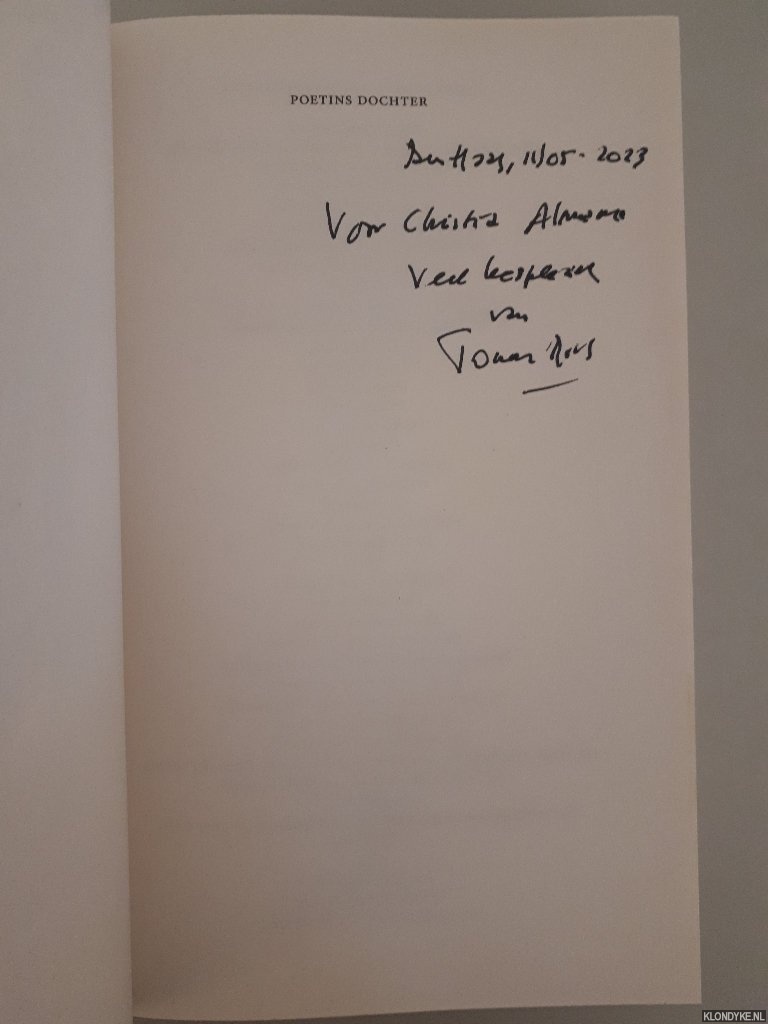 POETINS DOCHTER
Den Haag, 11/05-2023
Voor Christia
Veel leesplezier
van
Tomas Ross
KLONDYKE.NL